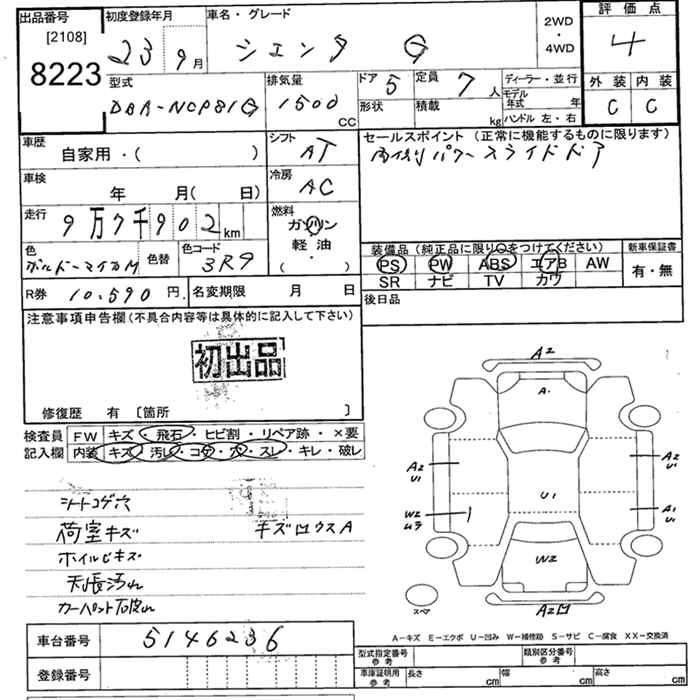 出品番号
[2108]
8223
初度登録年月
23 9月
車名・グレード
シエンタ G
2WD
・
4WD
評価点
4
外装 内装
C C
型式
DBA-NCP81G
排気量
1500
CC
ドア 5
形状
定員 7人
積載 kg
ディーラー・並行
モデル年式 年
ハンドル 左・右
車歴
自家用・( )
車検
年 月( 日)
走行
9万7千902km
色
ボルドーマイカM
色替
色コード
3R9
R券 10,590円
名変期限 月 日
シフト
AT
冷房
AC
燃料
ガソリン
軽油
( ・ )
セールスポイント(正常に機能するものに限ります)
両側パワースライドドア
装備品(純正品に限り○をつけてください)
PS PW ABS エアB AW
SR ナビ TV カワ
新車保証書
有・無
後日品
注意事項申告欄(不具合内容等は具体的に記入して下さい)
初出品
修復歴 有 [箇所 ]
検査員
記入欄
FW キズ・飛石・ヒビ割・リペア跡・×要
内装 キズ・汚レ・コゲ・穴・スレ・キレ・破レ
シートコゲ穴
荷室キズ
キズロウスA
ホイルCキズ
天張汚れ
カーペット
車台番号 5146236
登録番号
A2
A
A2
U1
W2
U1
A2
U1
A1
U1
W2
A2
スペア
A-キズ E-エクボ U-凹み W-補修跡 S-サビ C-腐食 XX-交換済
型式指定番号
参考
類別区分番号
参考
車庫証明用
参考
長さ cm
幅 cm
高さ cm